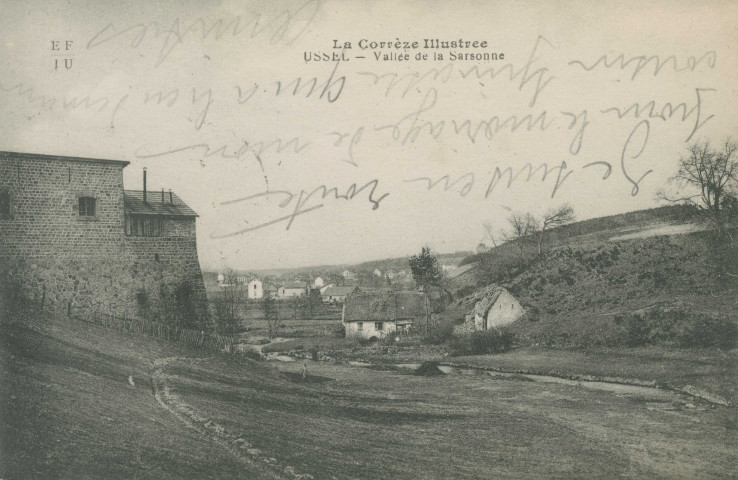 E F
I U
La Corrèze Illustree
USSEL — Vallée de la Sarsonne
Je suis en route
pour le mariage de mon
cousin qui a lieu demain
Amitiés